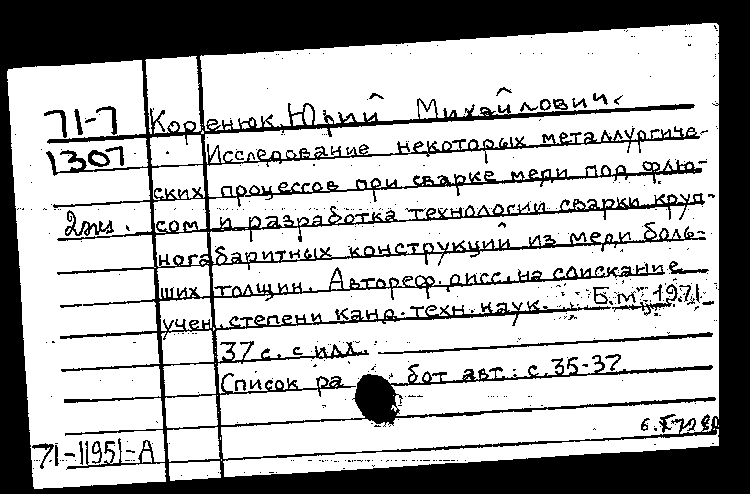 71-7 Коренюк, Юрий Михайлович.
1307 Исследование некоторых металлургиче-
ских процессов при сварке меди под флю-
2экз. сом и разработка технологии сварки круп-
ногабаритных конструкций из меди боль-
ших толщин. Автореф. дисс. на соискание
учен. степени канд. техн. наук. Б.м. 1971
37 с. с илл.
Список работ авт.: с. 35-37.
71-11951-А